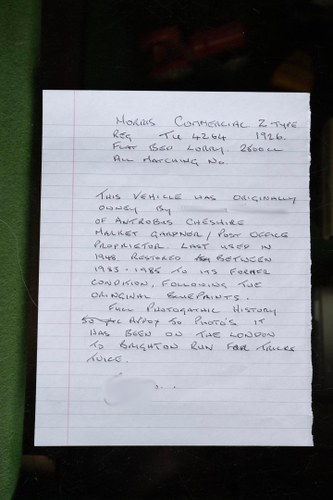 MORRIS COMMERCIAL Z TYPE
REG TU 4264 1926.
FLAT BED LORRY. 2800CC
ALL MATCHING NO.
THIS VEHICLE WAS ORIGINALLY
OWNEY BY
OF ANTROBUS CHESHIRE
MARKET GARDNER / POST OFFICE
PROPRIETOR LAST USED IN
1948. RESTORED BETWEEN
1983-1985 TO ITS FORMER
CONDITION, FOLLOWING THE
ORIGINAL BLUEPRINTS.
FULL PHOTOGATHIC HISTORY
APPOX 50 PHOTO'S IT
HAS BEEN ON THE LONDON
TO BRIGHTON RUN FOR TRUCKS
TWICE.